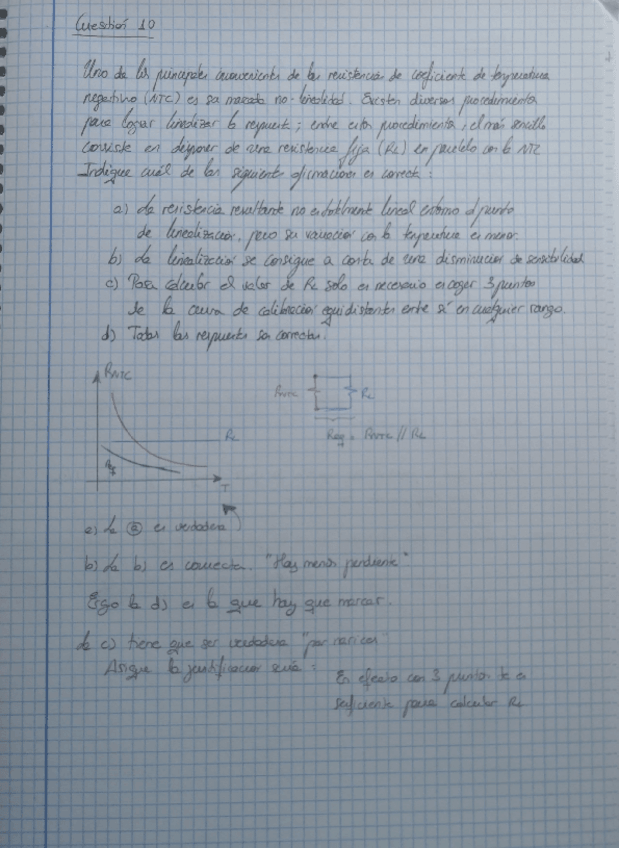 Cuestión 10
Uno de los principales inconvenientes de las resistencias de coeficiente de temperatura
negativo (NTC) es su marcada no-linealidad. Existen diversos procedimientos
para lograr linealizar la respuesta; entre estos procedimientos, el más sencillo
consiste en disponer de una resistencia fija (RL) en paralelo con la NTC
Indique cuál de las siguientes afirmaciones es correcta:
a) La resistencia resultante no es totalmente lineal entorno al punto
de linealización, pero su variación con la temperatura es menor.
b) La linealización se consigue a costa de una disminución de sensibilidad
c) Para calcular el valor de RL solo es necesario escoger 3 puntos
de la curva de calibración equidistantes entre sí en cualquier rango.
d) Todas las respuestas son correctas.
RNTC
RL
T
RNTC RL
Req = RNTC // RL
a) La (a) es verdadera
b) La b) es correcta. "Hay menos pendiente"
Ergo la d) es la que hay que marcar.
La c) tiene que ser verdadera "por narices"
Asique la justificación sería:
En efecto con 3 puntos te es
suficiente para calcular RL